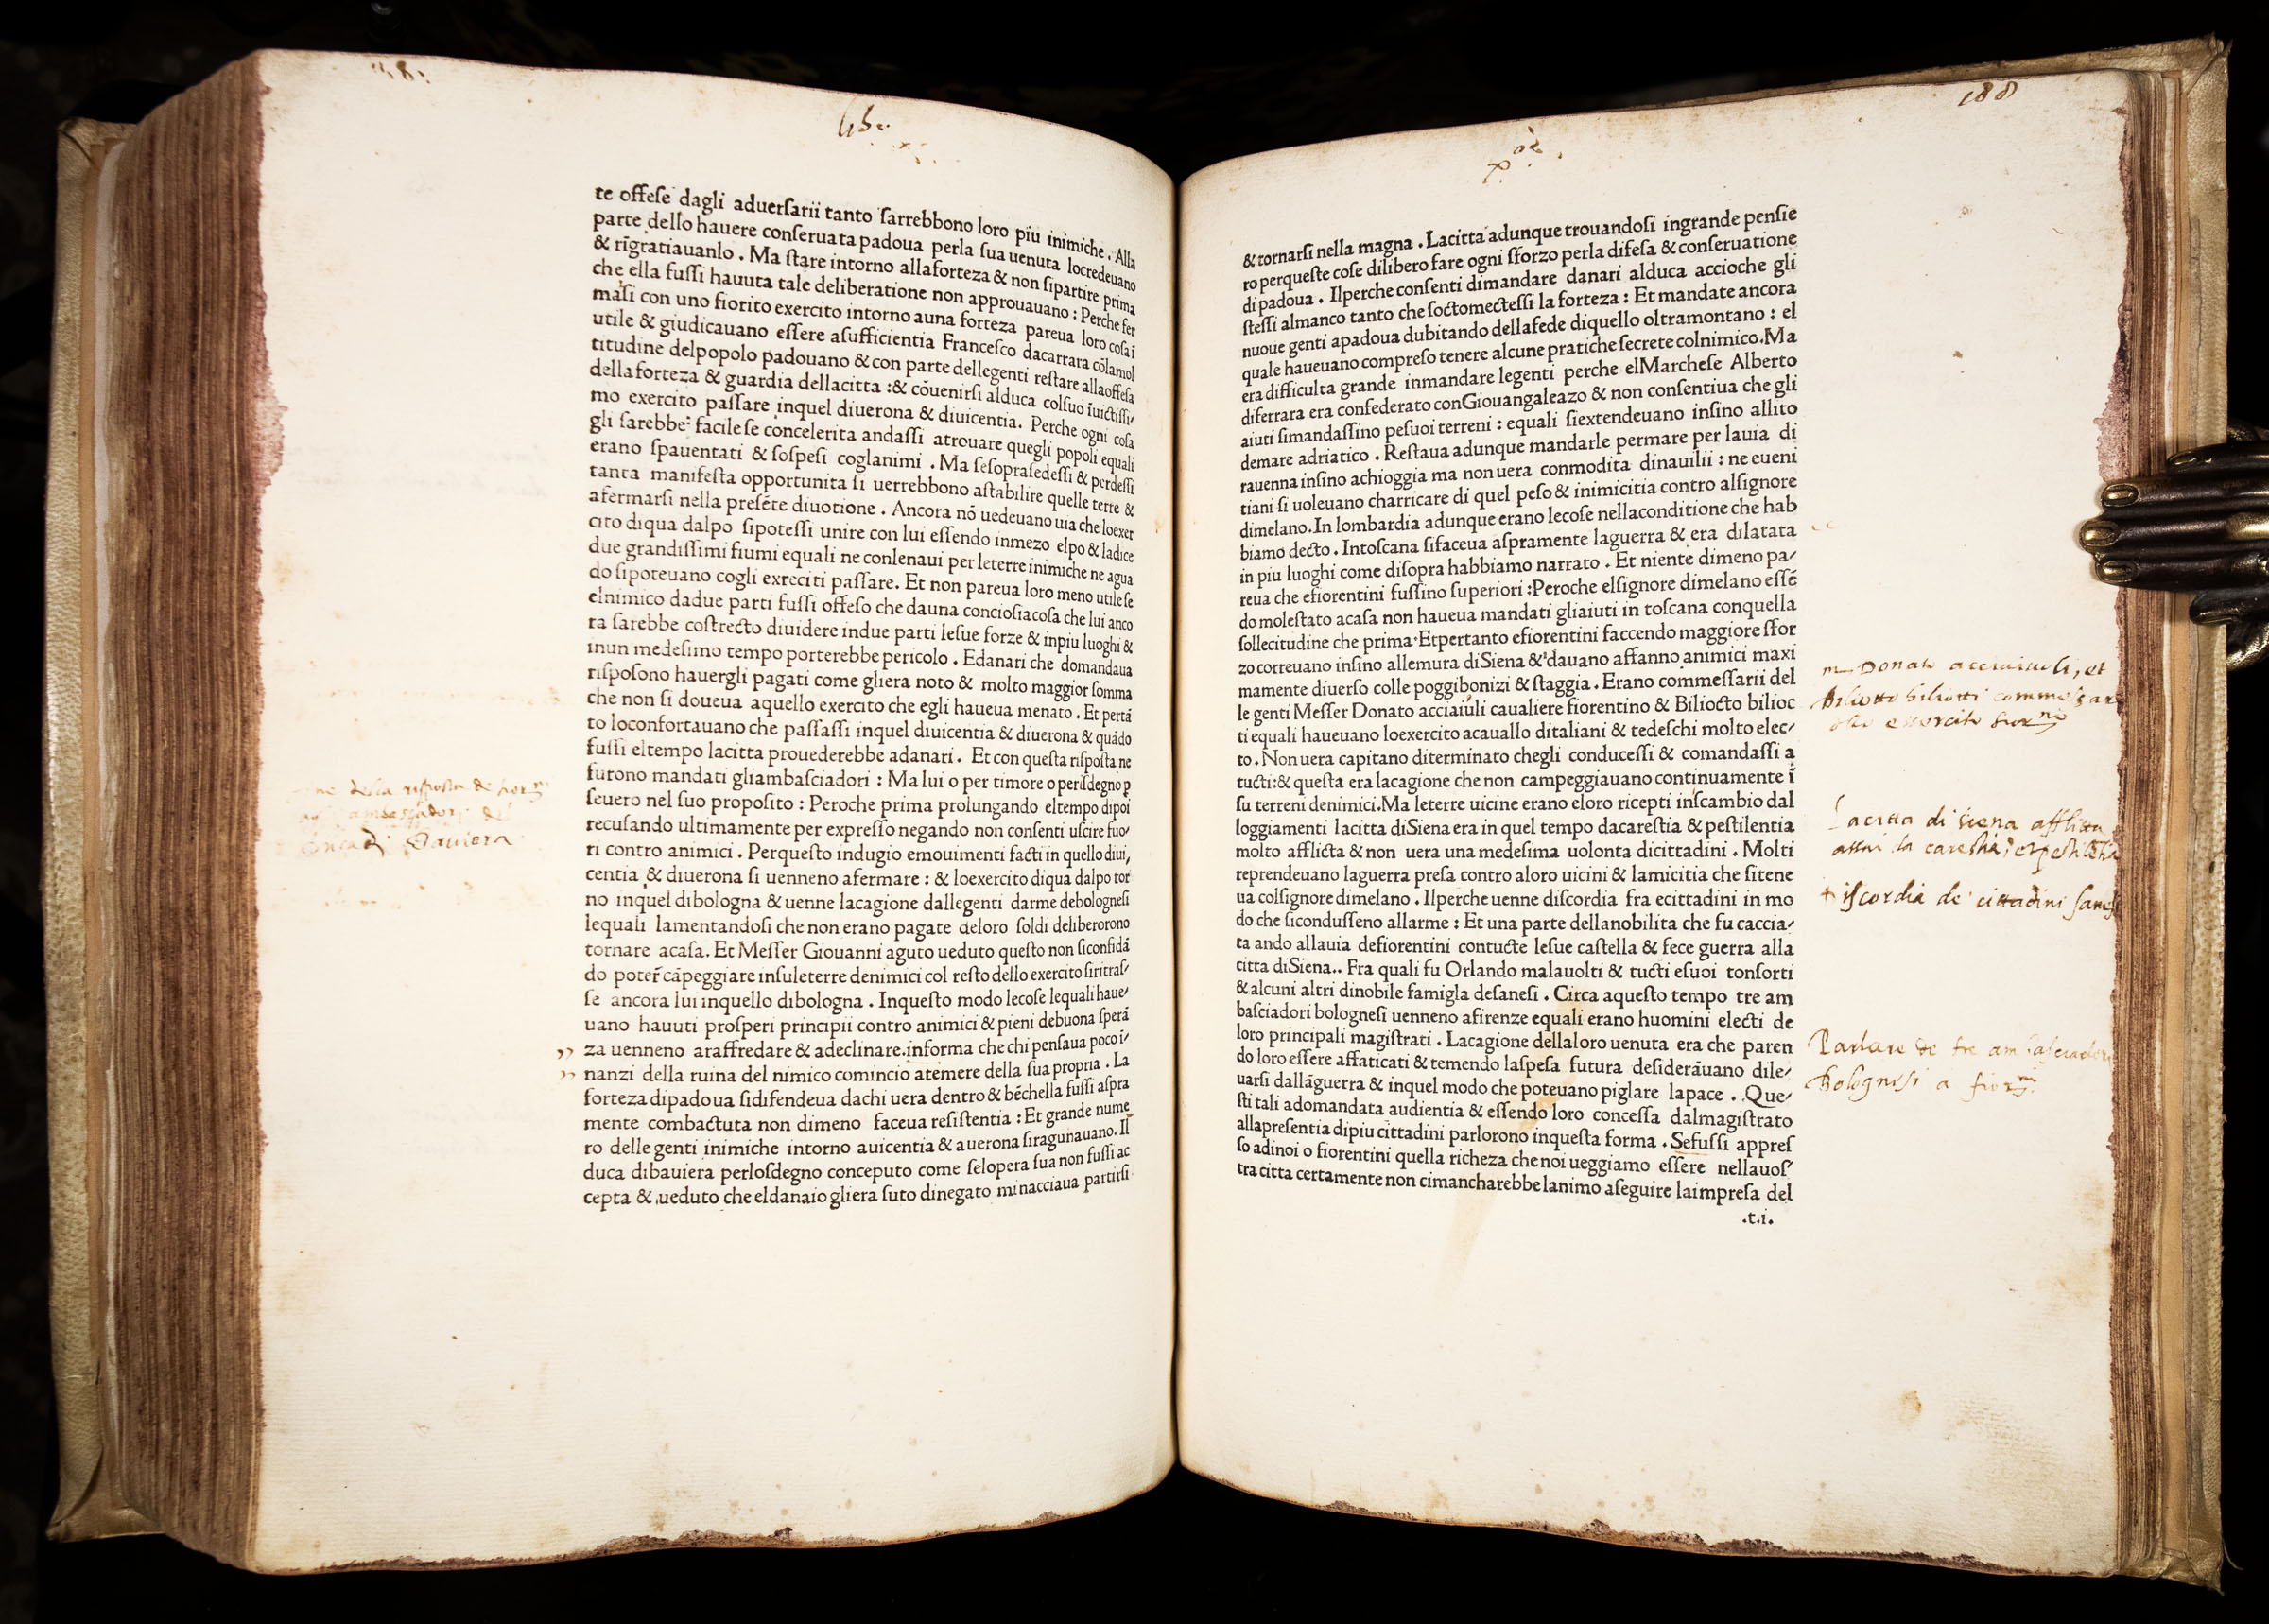 lib.
te offese dagli aduersarii tanto sarrebbono loro piu inimiche. Alla
parte dello hauere conseruata padoua perla sua uenuta locredeuano
& rīgratiauanlo. Ma stare intorno allaforteza & non sipartire prima
che ella fussi hauuta tale deliberatione non approuauano: Perche fer
masi con uno fiorito exercito intorno auna forteza pareua loro cosa ī
utile & giudicauano essere asufficientia Francesco dacarrara cōlamol
titudine delpopolo padouano & con parte dellegenti restare allaoffesa
dellaforteza & guardia dellacitta :& cōuenirsi alduca colsuo īuictissi/
mo exercito passare inquel diuerona & diuicentia. Perche ogni cosa
gli sarebbe facile se concelerita andassi atrouare quegli popoli equali
erano spauentati & sospesi coglanimi. Ma sesoprasedessi & perdessi
tanta manifesta opportunita si uerrebbono astabilire quelle terre &
afermarsi nella presēte diuotione. Ancora nō uedeuano uia che loexer
cito diqua dalpo sipotessi unire con lui essendo inmezo elpo & ladice
due grandissimi fiumi equali ne conlenaui per leterre inimiche ne agua
do sipoteuano cogli exreciti passare. Et non pareua loro meno utile se
elnimico dadue parti fussi offeso che dauna conciosiacosa che lui anco
ra sarebbe costrecto diuidere indue parti lesue forze & inpiu luoghi &
inun medesimo tempo porterebbe pericolo. Edanari che domandaua
risposono hauergli pagati come gliera noto & molto maggior somma
che non si doueua aquello exercito che egli haueua menato. Et pertā
to loconfortauano che passassi inquel diuicentia & diuerona & quādo
fussi eltempo lacitta prouederebbe adanari. Et con questa risposta ne
furono mandati gliambasciadori: Ma lui o per timore o perisdegno p
seuero nel suo proposito: Peroche prima prolungando eltempo dipoi
recusando ultimamente per expresso negando non consenti uscire fuo/
ri contro animici. Perquesto indugio emouimenti facti in quello diui,
centia & diuerona si uenneno afermare: & loexercito diqua dalpo tor
no inquel dibologna & uenne lacagione dallegenti darme debolognesi
lequali lamentandosi che non erano pagate deloro soldi deliberorono
tornare acasa. Et Messer Giouanni aguto ueduto questo non siconfidā
do poter̄ cāpeggiare insuleterre denimici col resto dello exercito siritras/
se ancora lui inquello dibologna. Inquesto modo lecose lequali haue/
uano hauuti prosperi principii contro animici & pieni debuona sperā
za uenneno araffredare & adeclinare.informa che chi pensaua poco i/
nanzi della ruina del nimico comincio atemere della sua propria. La
forteza dipadoua sidifendeua dachi uera dentro & bēchella fussi aspra
mente combactuta non dimeno faceua resistentia: Et grande nume
ro delle genti inimiche intorno auicentia & auerona siragunauano. Il
duca dibauiera perlosdegno conceputo come selopera sua non fussi ac
cepta & ueduto che eldanaio gliera suto dinegato minacciaua partirsi
188
& tornarsi nella magna. Lacitta adunque trouandosi ingrande pensie
ro perqueste cose dilibero fare ogni sforzo perla difesa & conseruatione
di padoua. Ilperche consenti dimandare danari alduca accioche gli
stessi almanco tanto che soctomectessi la forteza: Et mandate ancora
nuoue genti apadoua dubitando dellafede diquello oltramontano: el
quale haueuano compreso tenere alcune pratiche secrete colnimico.Ma
era difficulta grande inmandare legenti perche elMarchese Alberto
diferrara era confederato conGiouangaleazo & non consentiua che gli
aiuti simandassino pesuoi terreni: equali siextendeuano insino allito
demare adriatico. Restaua adunque mandarle permare per lauia di
rauenna insino achioggia ma non uera conmodita dinauilii: ne eueni
tiani si uoleuano charricare di quel peso & inimicitia contro alsignore
dimelano.In lombardia adunque erano lecose nellaconditione che hab
biamo decto. Intoscana sifaceua aspramente laguerra & era dilatata
in piu luoghi come disopra habbiamo narrato. Et niente dimeno pa/
reua che efiorentini fussino superiori:Peroche elsignore dimelano essē
do molestato acasa non haueua mandati gliaiuti in toscana conquella
sollecitudine che prima.Etpertanto efiorentini faccendo maggiore sfor
zo correuano insino allemura diSiena & dauano affanno animici maxi
mamente diuerso colle poggibonizi & staggia. Erano commessarii del
le genti Messer Donato acciaiuli caualiere fiorentino & Biliocto bilioc
ti equali haueuano loexercito acauallo ditaliani & tedeschi molto elec/
to. Non uera capitano diterminato chegli conducessi & comandassi a
tucti:& questa era lacagione che non campeggiauano continuamente ī
su terreni denimici.Ma leterre uicine erano eloro ricepti inscambio dal
loggiamenti lacitta diSiena era in quel tempo dacarestia & pestilentia
molto afflicta & non uera una medesima uolonta dicittadini. Molti
reprendeuano laguerra presa contro aloro uicini & lamicitia che sitene
ua colsignore dimelano. Ilperche uenne discordia fra ecittadini in mo
do che siconduffeno allarme: Et una parte dellanobilita che fu caccia/
ta ando allauia defiorentini contucte lesue castella & fece guerra alla
citta diSiena.. Fra quali fu Orlando malauolti & tucti esuoi tonsorti
& alcuni altri dinobile famigla desanesi. Circa aquesto tempo tre am
basciadori bolognesi uenneno afirenze equali erano huomini electi de
loro principali magistrati. Lacagione dellaloro uenuta era che paren
do loro essere affaticati & temendo laspesa futura desiderāuano dile/
uarsi dallāguerra & inquel modo che poteuano piglare lapace. Que/
sti tali adomandata audientia & essendo loro concessa dalmagistrato
allapresentia dipiu cittadini parlorono inquesta forma. Sefussi appres
so adinoi o fiorentini quella richeza che noi ueggiamo essere nellauos/
tra citta certamente non cimancharebbe lanimo aseguire laimpresa del
.t.i.
della risposta de fior.ni
ambasciadori del
Baviera
m. Donato acciaiuoli, et
Biliotto biliotti commessari
essercito fior.no
La citta di Siena afflitta
assai da carestia, et pestilētia
Discordia de cittadini sanesi
Parlare de tre ambasciadori
Bolognesi a fior.ni